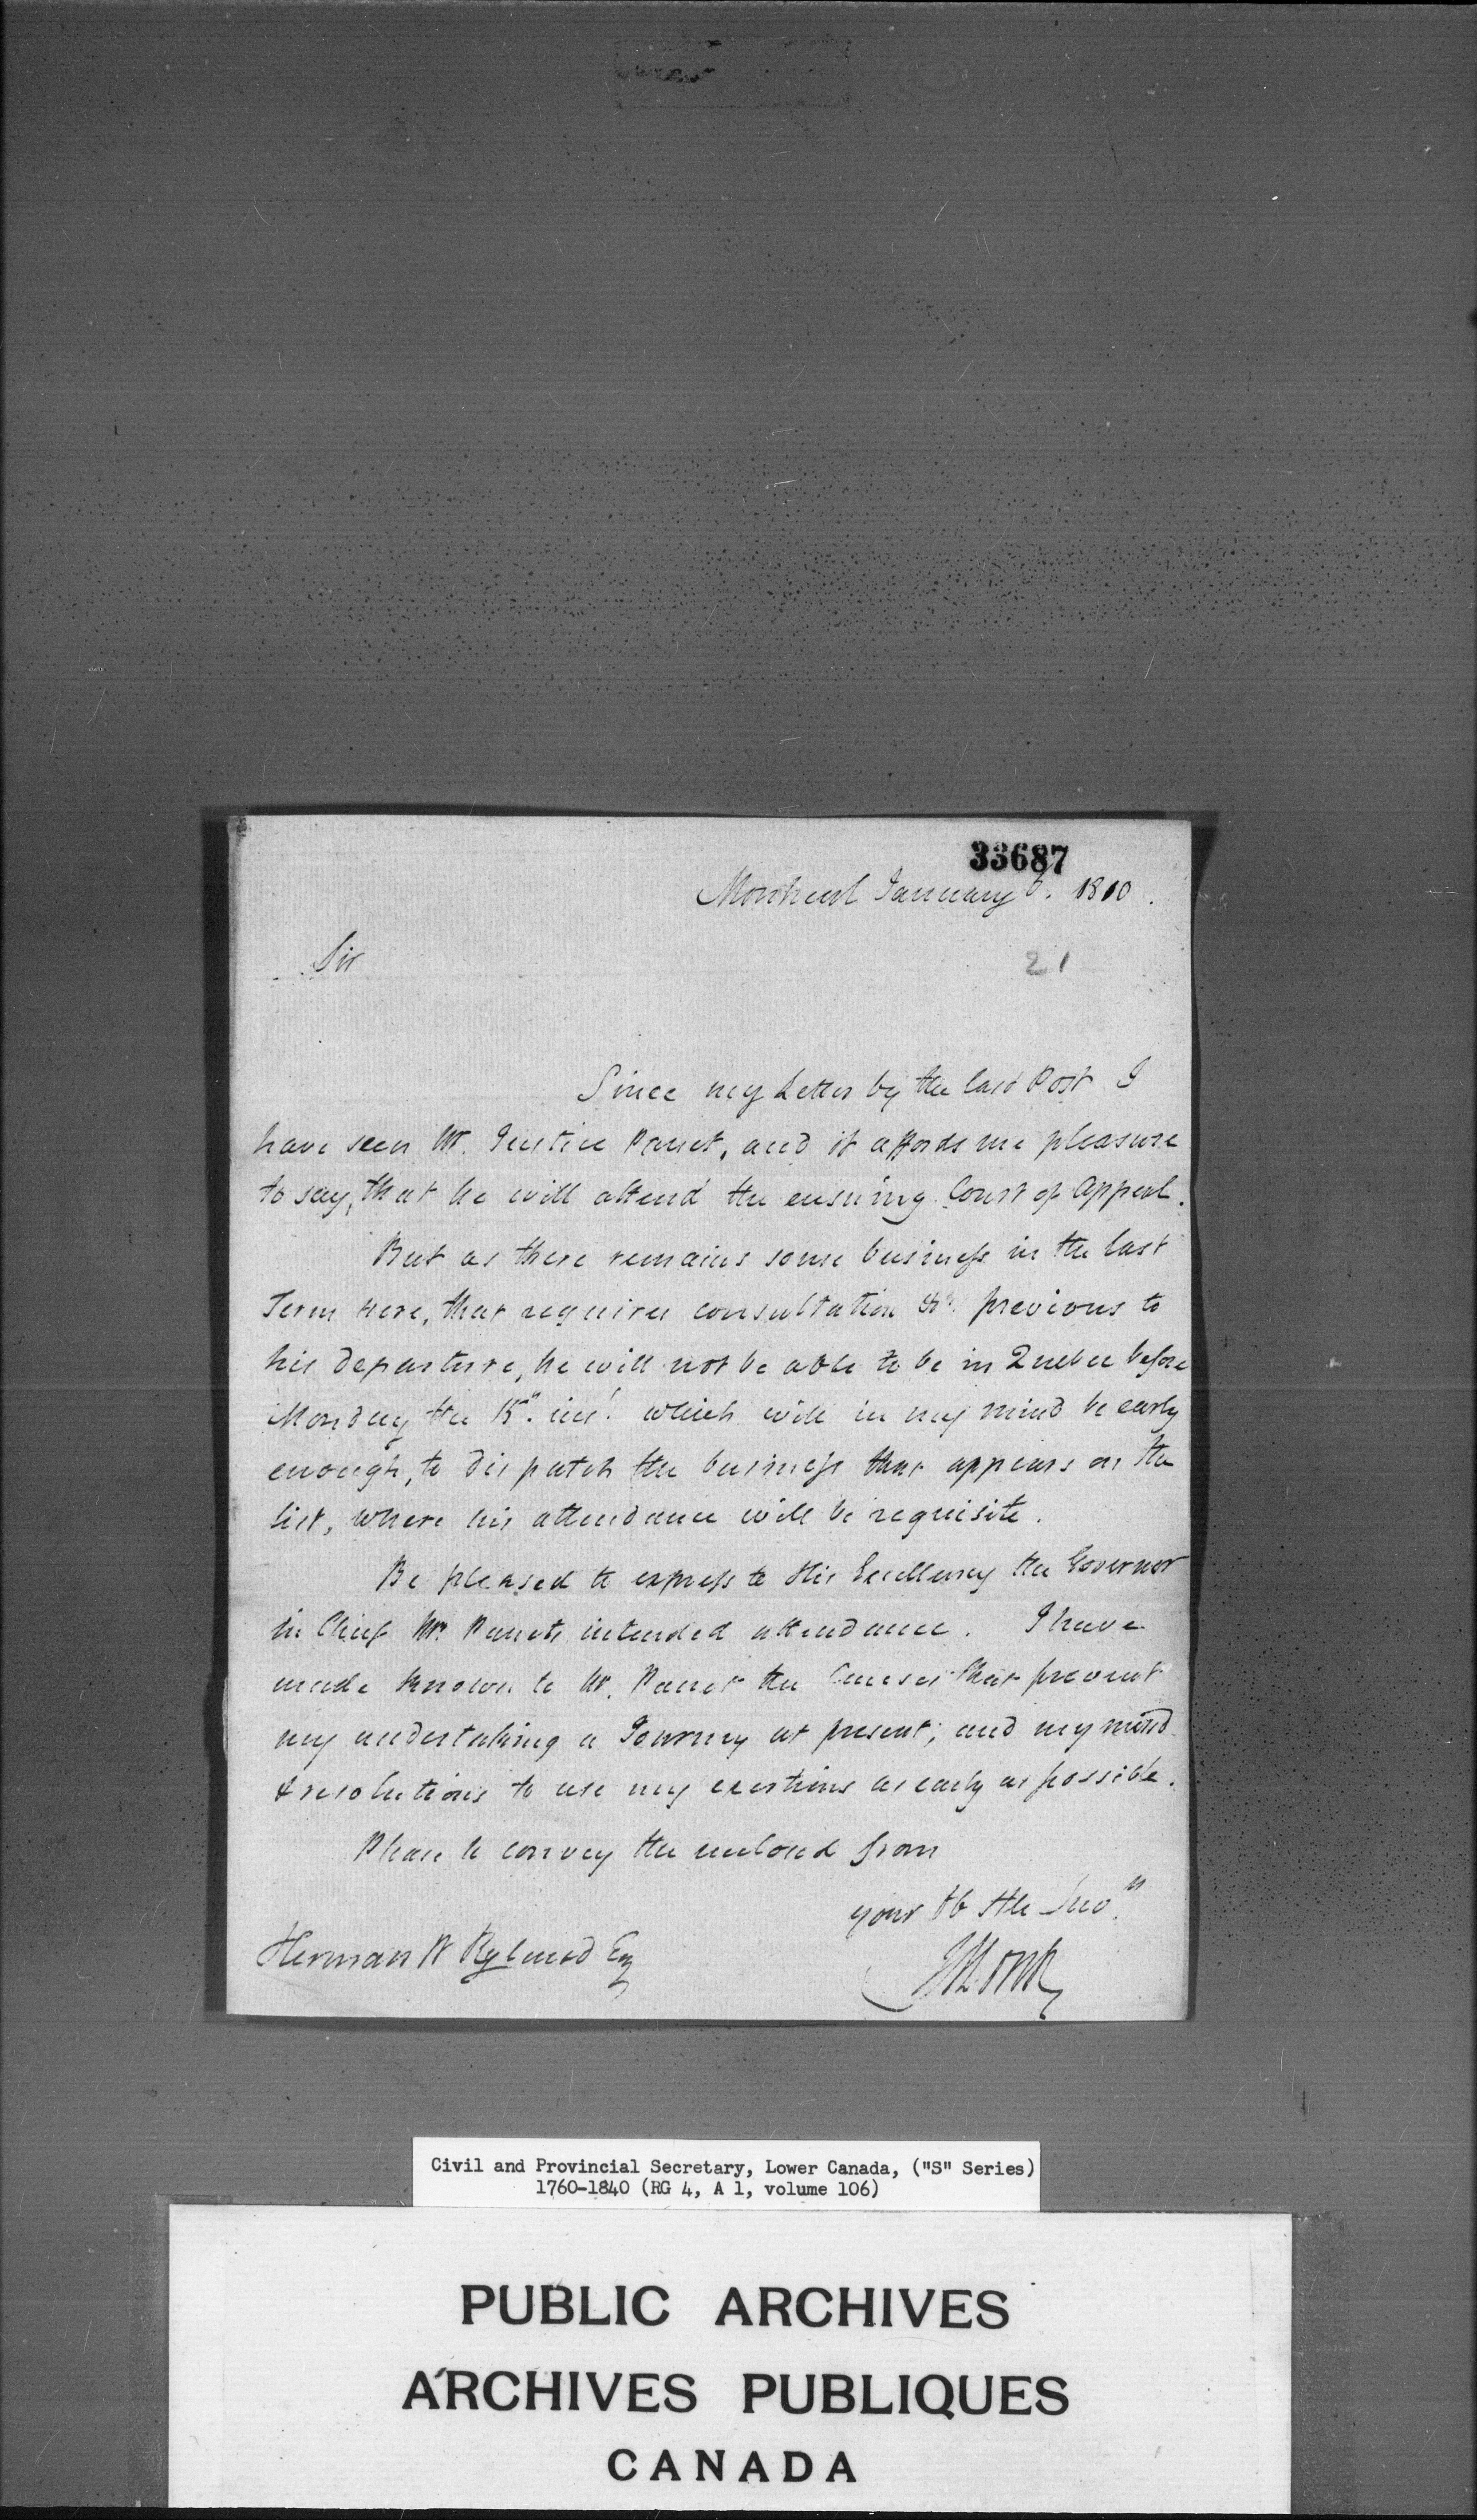 33687
Montreal January 6. 1810.
21
Sir
Since my Letter by the last Post I
have seen Mr. Justice Panet, and it affords me pleasure
to say, that he will attend the ensuing Court of Appeal.
But as there remains some business in the last
Term here, that requires consultation &c. previous to
his departure, he will not be able to be in Quebec before
Monday the 15th. inst. which will in my mind be early
enough, to dispatch the business that appears on the
list, where his attendance will be requisite.
Be pleased to express to His Excellency the Governor
in Chief Mr. Panets intended attendance. I have
made known to Mr. Panet the Causes that prevent
my undertaking a Journey at present; and my mind
& resolutions to use my exertions as early as possible.
Please to convey the enclosed from
your Hble Serv.
JMonk
Herman W Ryland Esq
Civil and Provincial Secretary, Lower Canada, ("S" Series)
1760-1840 (RG 4, A 1, volume 106)
PUBLIC ARCHIVES
ARCHIVES PUBLIQUES
CANADA